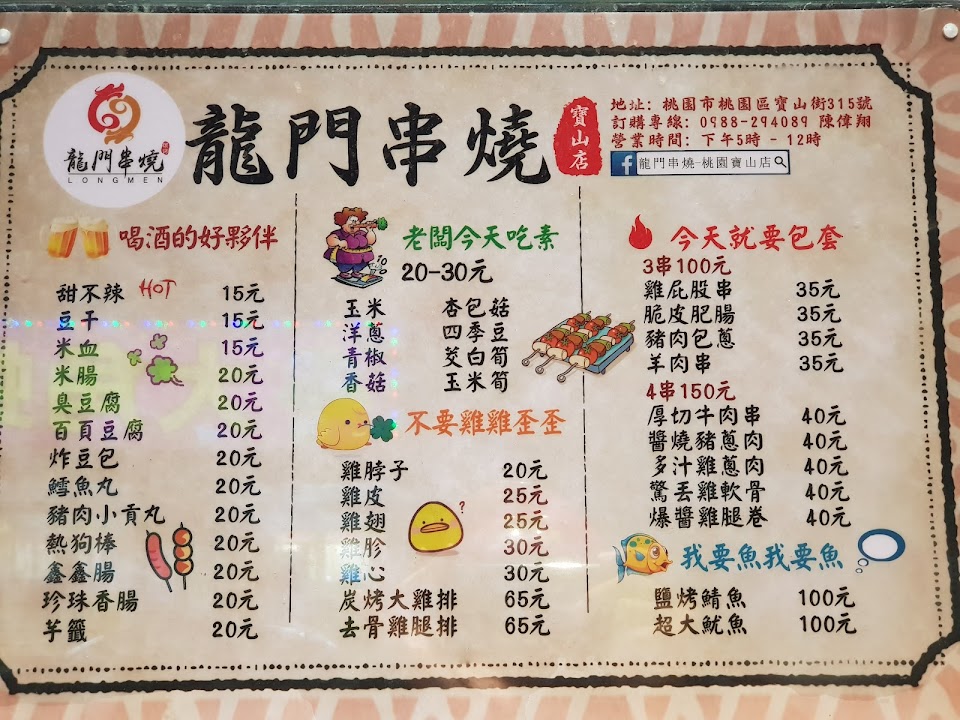 龍門串燒
LONGMEN
龍門串燒
寶山店
地址: 桃園市桃園區寶山街315號
訂購專線: 0988-294089 陳偉翔
營業時間: 下午5時 - 12時
f 龍門串燒-桃園寶山店
喝酒的好夥伴
甜不辣 HOT 15元
豆干 15元
米血 15元
米腸 20元
臭豆腐 20元
百頁豆腐 20元
炸豆包 20元
鱈魚丸 20元
豬肉小貢丸 20元
熱狗棒 20元
鑫鑫腸 20元
珍珠香腸 20元
芋籤 20元
老闆今天吃素
20-30元
玉米 杏包菇
洋蔥 四季豆
青椒 茭白筍
香菇 玉米筍
不要雞雞歪歪
雞脖子 20元
雞皮 25元
雞翅 25元
雞胗 30元
雞心 30元
炭烤大雞排 65元
去骨雞腿排 65元
今天就要包套
3串100元
雞屁股串 35元
脆皮肥腸 35元
豬肉包蔥 35元
羊肉串 35元
4串150元
厚切牛肉串 40元
醬燒豬蔥肉 40元
多汁雞蔥肉 40元
驚丟雞軟骨 40元
爆醬雞腿卷 40元
我要魚我要魚
鹽烤鯖魚 100元
超大魷魚 100元